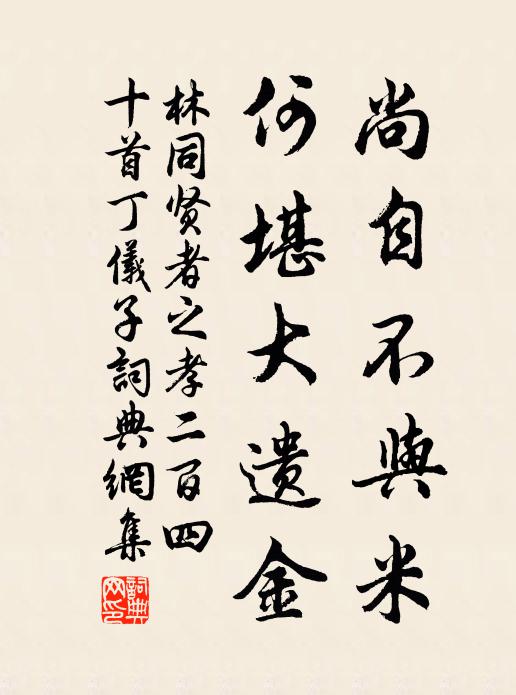 尚自不與米
何堪大遗金
林同贤者之孝二百四
十首丁儀子詞典網集
詞典
网印